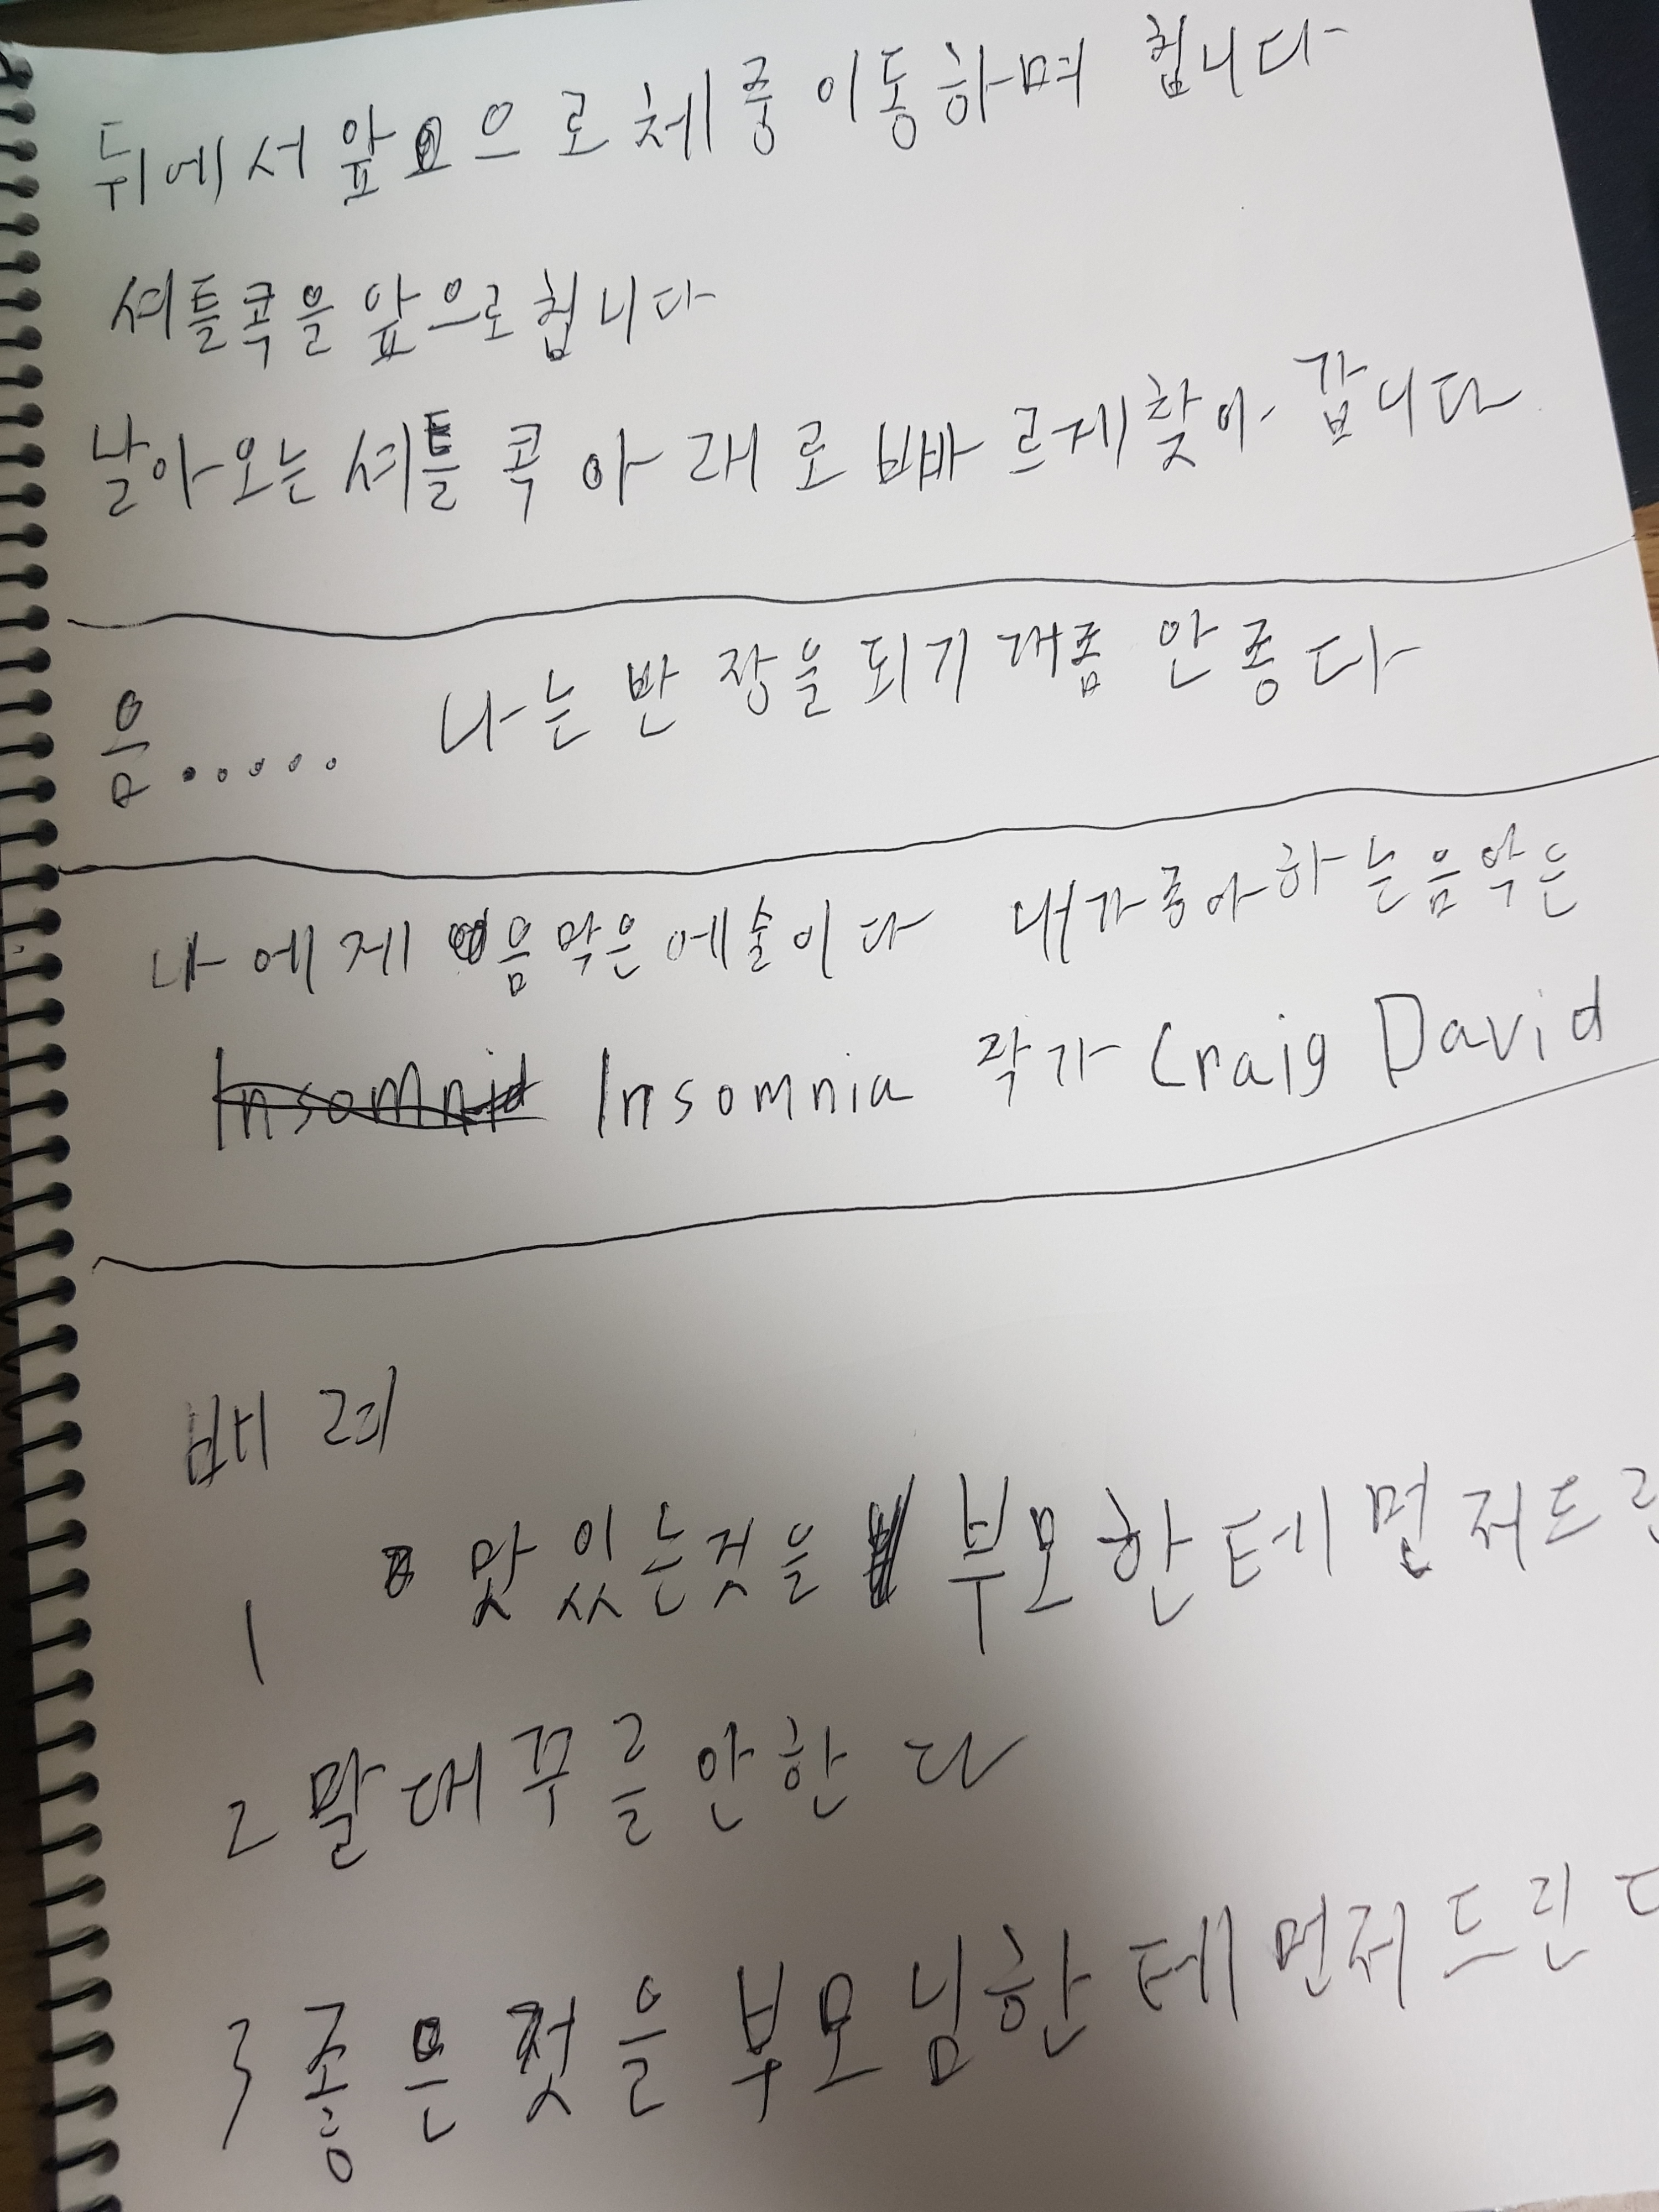 뒤에서 앞으로 체중 이동하며 칩니다
셔틀콕을 앞으로 칩니다
날아오는 셔틀콕 아래로 빠르게 찾아 갑니다
음..... 나는 반장을 되기 개좀 안좋다
나에게 음악은 에술이다 내가 좋아하는 음악은
Insomnia 작가 Craig David
배려
1 맛있는것을 부모한테 먼저드린
2 말대꾸를 안한다
3 좋은것을 부모님한테 먼저드린다